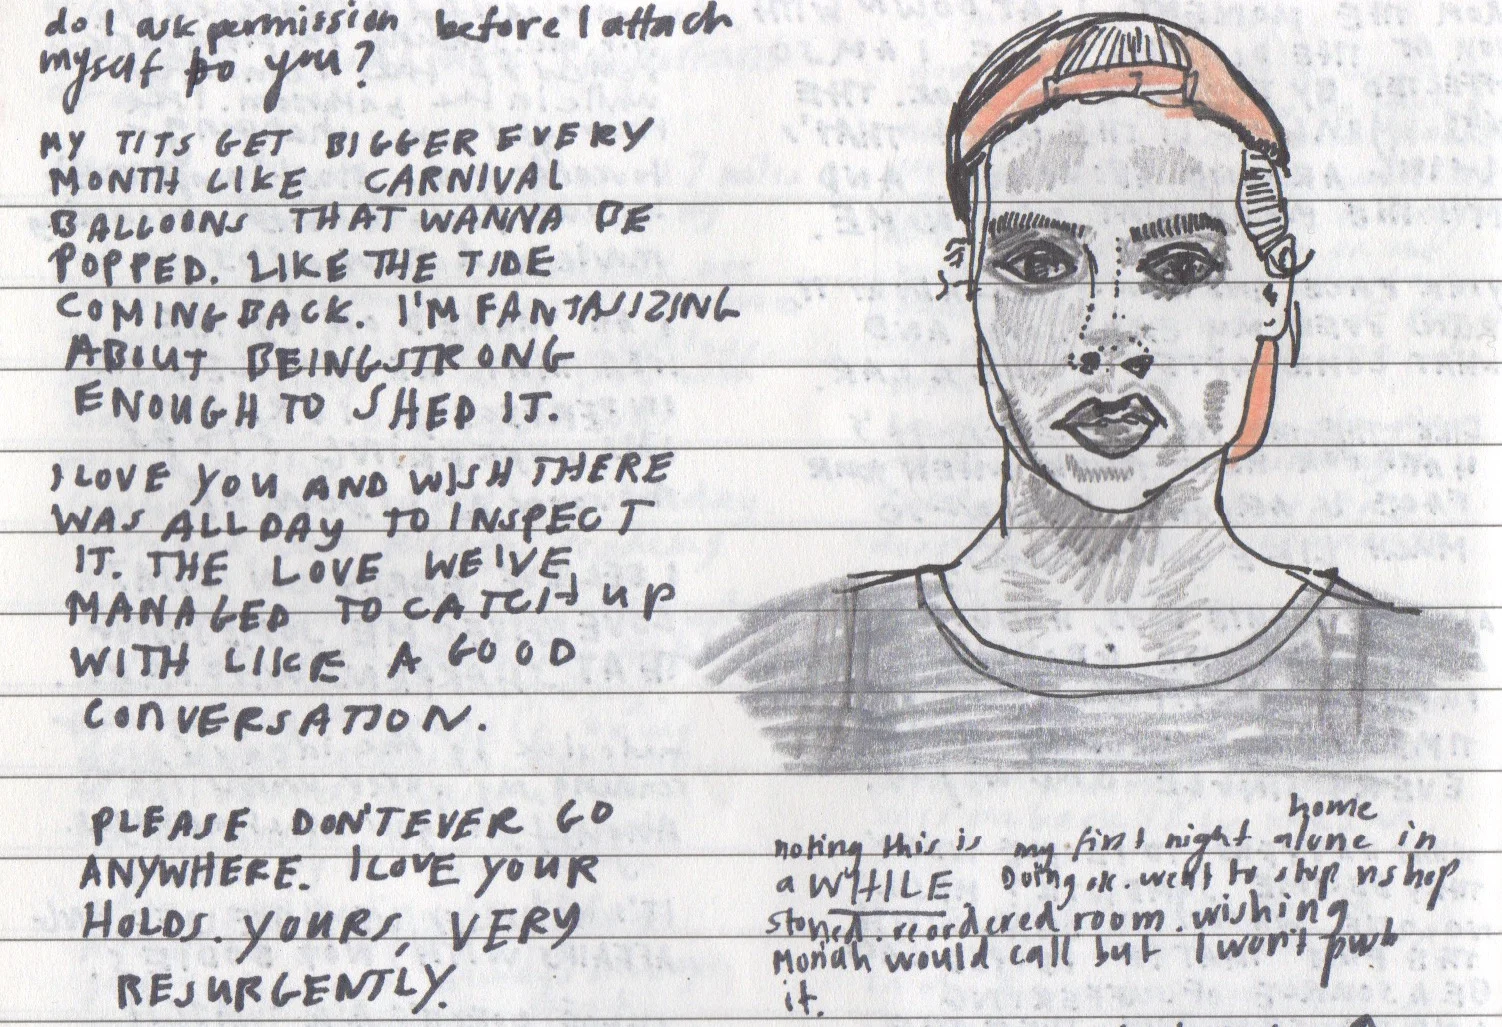 do I ask permission before I attach
myself to you?
MY TITS GET BIGGER EVERY
MONTH LIKE CARNIVAL
BALLOONS THAT WANNA BE
POPPED. LIKE THE TIDE
COMING BACK. I'M FANTASIZING
ABOUT BEING STRONG
ENOUGH TO SHED IT.
I LOVE YOU AND WISH THERE
WAS ALL DAY TO INSPECT
IT. THE LOVE WE'VE
MANAGED TO CATCH UP
WITH LIKE A GOOD
CONVERSATION.
PLEASE DON'T EVER GO
ANYWHERE. I LOVE YOUR
HOLDS. YOURS, VERY
RESURGENTLY.
home
noting this is my first night alone in
a WHILE Doing ok. went to stop n shop
stoned. reordered room. wishing
Moriah would call but I won't push
it.